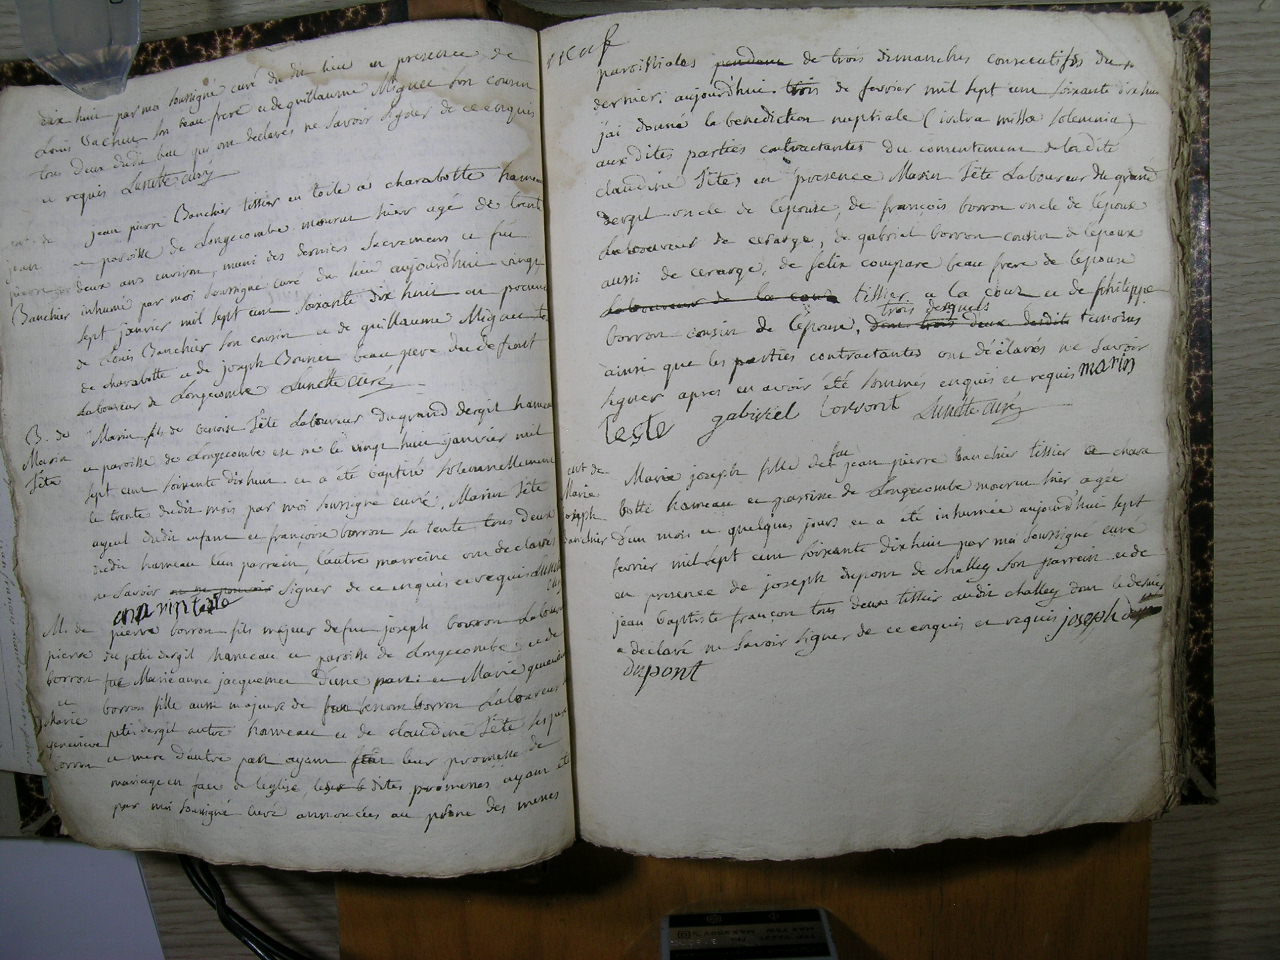 dix huit par moi soussigné curé du dit lieu en presence de
Louis son beau frere et de guillaume Miguet son cousin
tous deux dudit lieu qui ont declarés ne savoir signer de ce enquis
et requis Lunette curé
ent. de jean pierre Banchier tissier en toile a charabotte hameau
jean et paroisse de Longecombe mourut hier agé de trente
pierre deux ans environ, muni des derniers sacremens et fut
Banchier inhumé par moi soussigné curé du lieu aujourdhui vingt
sept janvier mil sept cent soixante dix huit en presence
de Louis Banchier son cousin et de guillaume Miguet
de charabotte et de joseph beau pere du defunt
Laboureur de Longecombe Lunette curé
B. de Marin fils de benoist Téte Laboureur du grand dergit hameau
Marin et paroisse de Longecombe est né le vingt huit janvier mil
Téte sept cent soixante dixhuit et a été baptisé solemnellement
le trente dudit mois par moi soussigné curé, Marin Téte
ayeul dudit enfant et françoise borron sa tante tous deux
dudit hameau l'un parrain, l'autre marreine ont declarés
ne savoir signer de ce enquis et requis Lunette
marin teste curé
M. de pierre borron fils majeur de feu joseph borron Laboureur
pierre du petit dergit hameau et paroisse de Longecombe et de
borron fue Marieanne jacquemet d'une part: et Marie genevieve
et borron fille aussi majeure de benoist borron Laboureur
Marie petit dergit autre hameau et de claudine Téte ses pere
genevieve et mere d'autre part ayant leur promesse de
borron mariage en face de l'eglise, les dites promesses ayant été
par moi soussigné curé annoncées au prone des messes
paroissiales pendant de trois dimanches consecutifs du
dernier; aujourdhui trois de fevrier mil sept cent soixante dix huit
j'ai donné la benediction nuptiale (intra missæ solemnia)
aux dites parties contractantes du consentement de la dite
claudine Tétes en presence Marin Téte Laboureur du grand
dergit oncle de l'epouse, de françois borron oncle de l'epoux
Laboureur de cerarge, de gabriel borron cousin de l'epoux
aussi de cerarge, de felix compare beau frere de l'epouse
Laboureur de la cour tissier a la cour et de philippe
trois desquels
borron cousin de l'épouse, dont trois deux desdits temoins
ainsi que les parties contractantes ont déclarés ne savoir
signer apres en avoir été sommés enquis et requis marin
teste gabiriel borront Lunette curé
ent de Marie joseph fille de feu jean pierre banchier tissier a chara
Marie botte hameau et paroisse de Longecombe mourut hier agée
joseph d'un mois et quelques jours et a été inhumée aujourdhui sept
banchier fevrier mil sept cent soixante dixhuit par moi soussigné curé
en presence de joseph dupont de challey son parrein et de
jean baptiste françon tous deux tissier audit challey dont le dernier
a declaré ne savoir signer de ce enquis et requis joseph
dupont